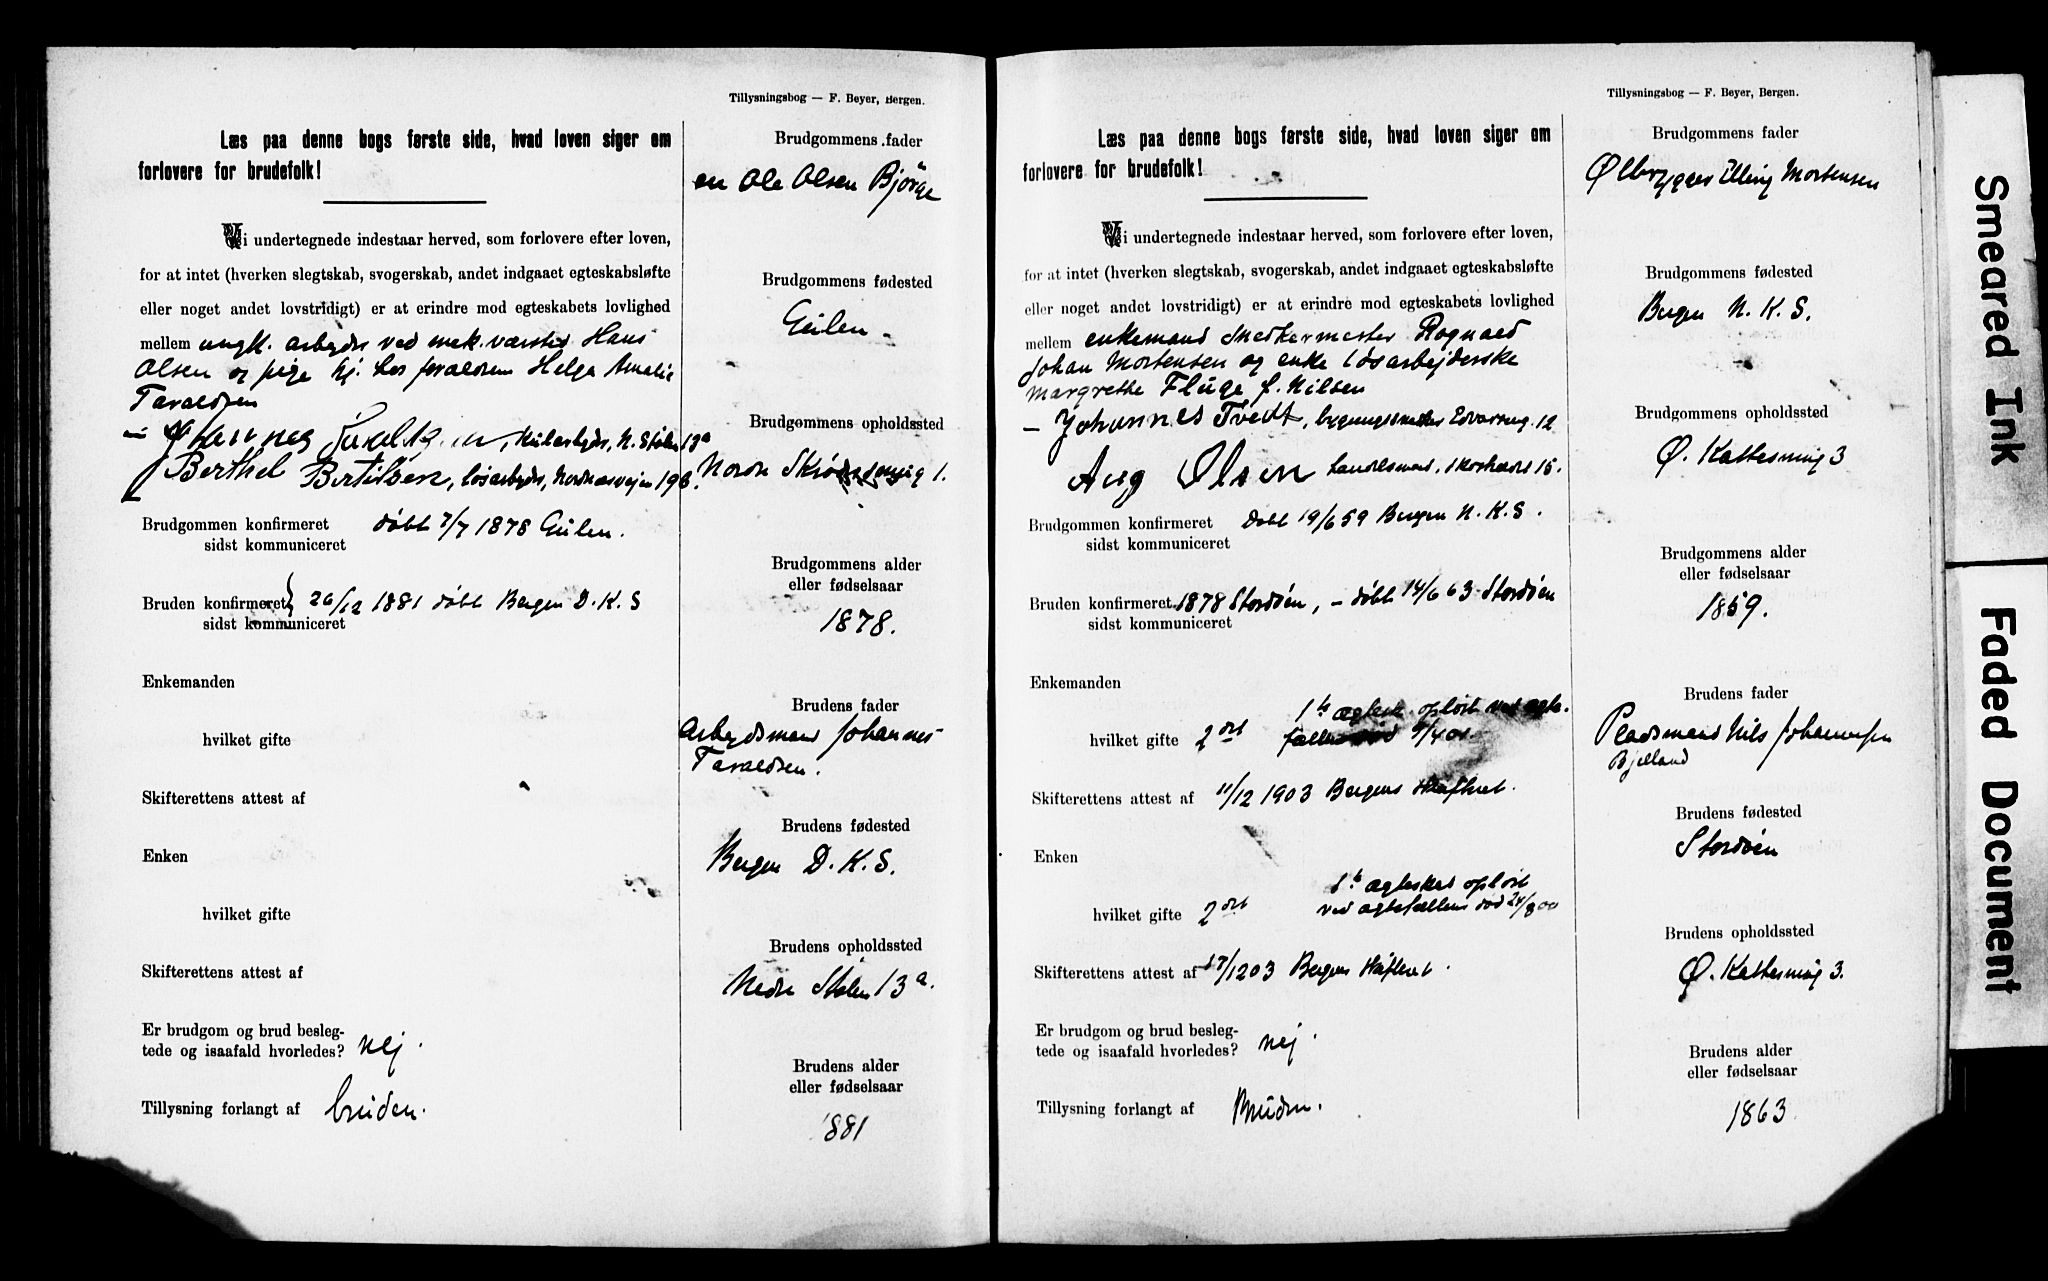 Tillysningsbog — F. Beyer, Bergen.
Læs paa denne bogs første side, hvad loven siger om
forlovere for brudefolk!
Vi undertegnede indestaar herved, som forlovere efter loven,
for at intet (hverken slegtskab, svogerskab, andet indgaaet egteskabsløfte
eller noget andet lovstridigt) er at erindre mod egteskabets lovlighed
mellem ungk. arbeyder ved mek. værsted Hans
Olsen og pige hj. hos forældrene Helga Amalie
Taraldsen
Johannes Taraldsen, N. Stølen 13a
Berthel Bertilsen, løsarbeyder, Nordnæsveien 19
Brudgommen konfirmeret døbt 7/7 1878 Gulen.
sidst kommuniceret
Bruden konfirmeret 26/12 1881 døbt Bergen D. K. S
sidst kommuniceret
Enkemanden
hvilket gifte
Skifterettens attest af
Enken
hvilket gifte
Skifterettens attest af
Er brudgom og brud besleg-
tede og isaafald hvorledes? nej.
Tillysning forlangt af bruden.
Brudgommens fader
Ole Olsen Bjørge
Brudgommens fødested
Gulen
Brudgommens opholdssted
Nordre 1.
Brudgommens alder
eller fødselsaar
1878.
Brudens fader
Arbeydsmand Johannes
Taraldsen.
Brudens fødested
Bergen D. K. S.
Brudens opholdssted
Nedre Stølen 13a.
Brudens alder
eller fødselsaar
1881
Tillysningsbog — F. Beyer, Bergen.
Læs paa denne bogs første side, hvad loven siger om
forlovere for brudefolk!
Vi undertegnede indestaar herved, som forlovere efter loven,
for at intet (hverken slegtskab, svogerskab, andet indgaaet egteskabsløfte
eller noget andet lovstridigt) er at erindre mod egteskabets lovlighed
mellem enkemand Snedkermester Rognald
Johan Mortensen og enke løsarbejderske
Margrethe Fluge f. Nilsen
Johannes Tvedt, bygningssnedker 12
Aug Olsen handelsmand, 15.
Brudgommen konfirmeret døbt 19/6 59 Bergen N. K. S.
sidst kommuniceret
Bruden konfirmeret 1878 Stordøen, – døbt 14/6 63 Stordøen
sidst kommuniceret
Enkemanden
hvilket gifte 2det 1ste ægtesk. opløst ved ægte-
fællens død
Skifterettens attest af 11/12 1903 Bergens skifteret.
Enken
hvilket gifte 2det 1ste ægteskab opløst
ved ægtefællens død 24/8 00
Skifterettens attest af 17/12 03 Bergens skifteret.
Er brudgom og brud besleg-
tede og isaafald hvorledes? nej.
Tillysning forlangt af Bruden.
Brudgommens fader
Ølbrygger Elling Mortensen
Brudgommens fødested
Bergen N. K. S.
Brudgommens opholdssted
Ø. Kattesmug 3
Brudgommens alder
eller fødselsaar
1859.
Brudens fader
Pladsmand Nils Johannesen
Bjelland
Brudens fødested
Stordøen
Brudens opholdssted
Ø. Kattesmug 3.
Brudens alder
eller fødselsaar
1863
Smeared Ink
Faded Document